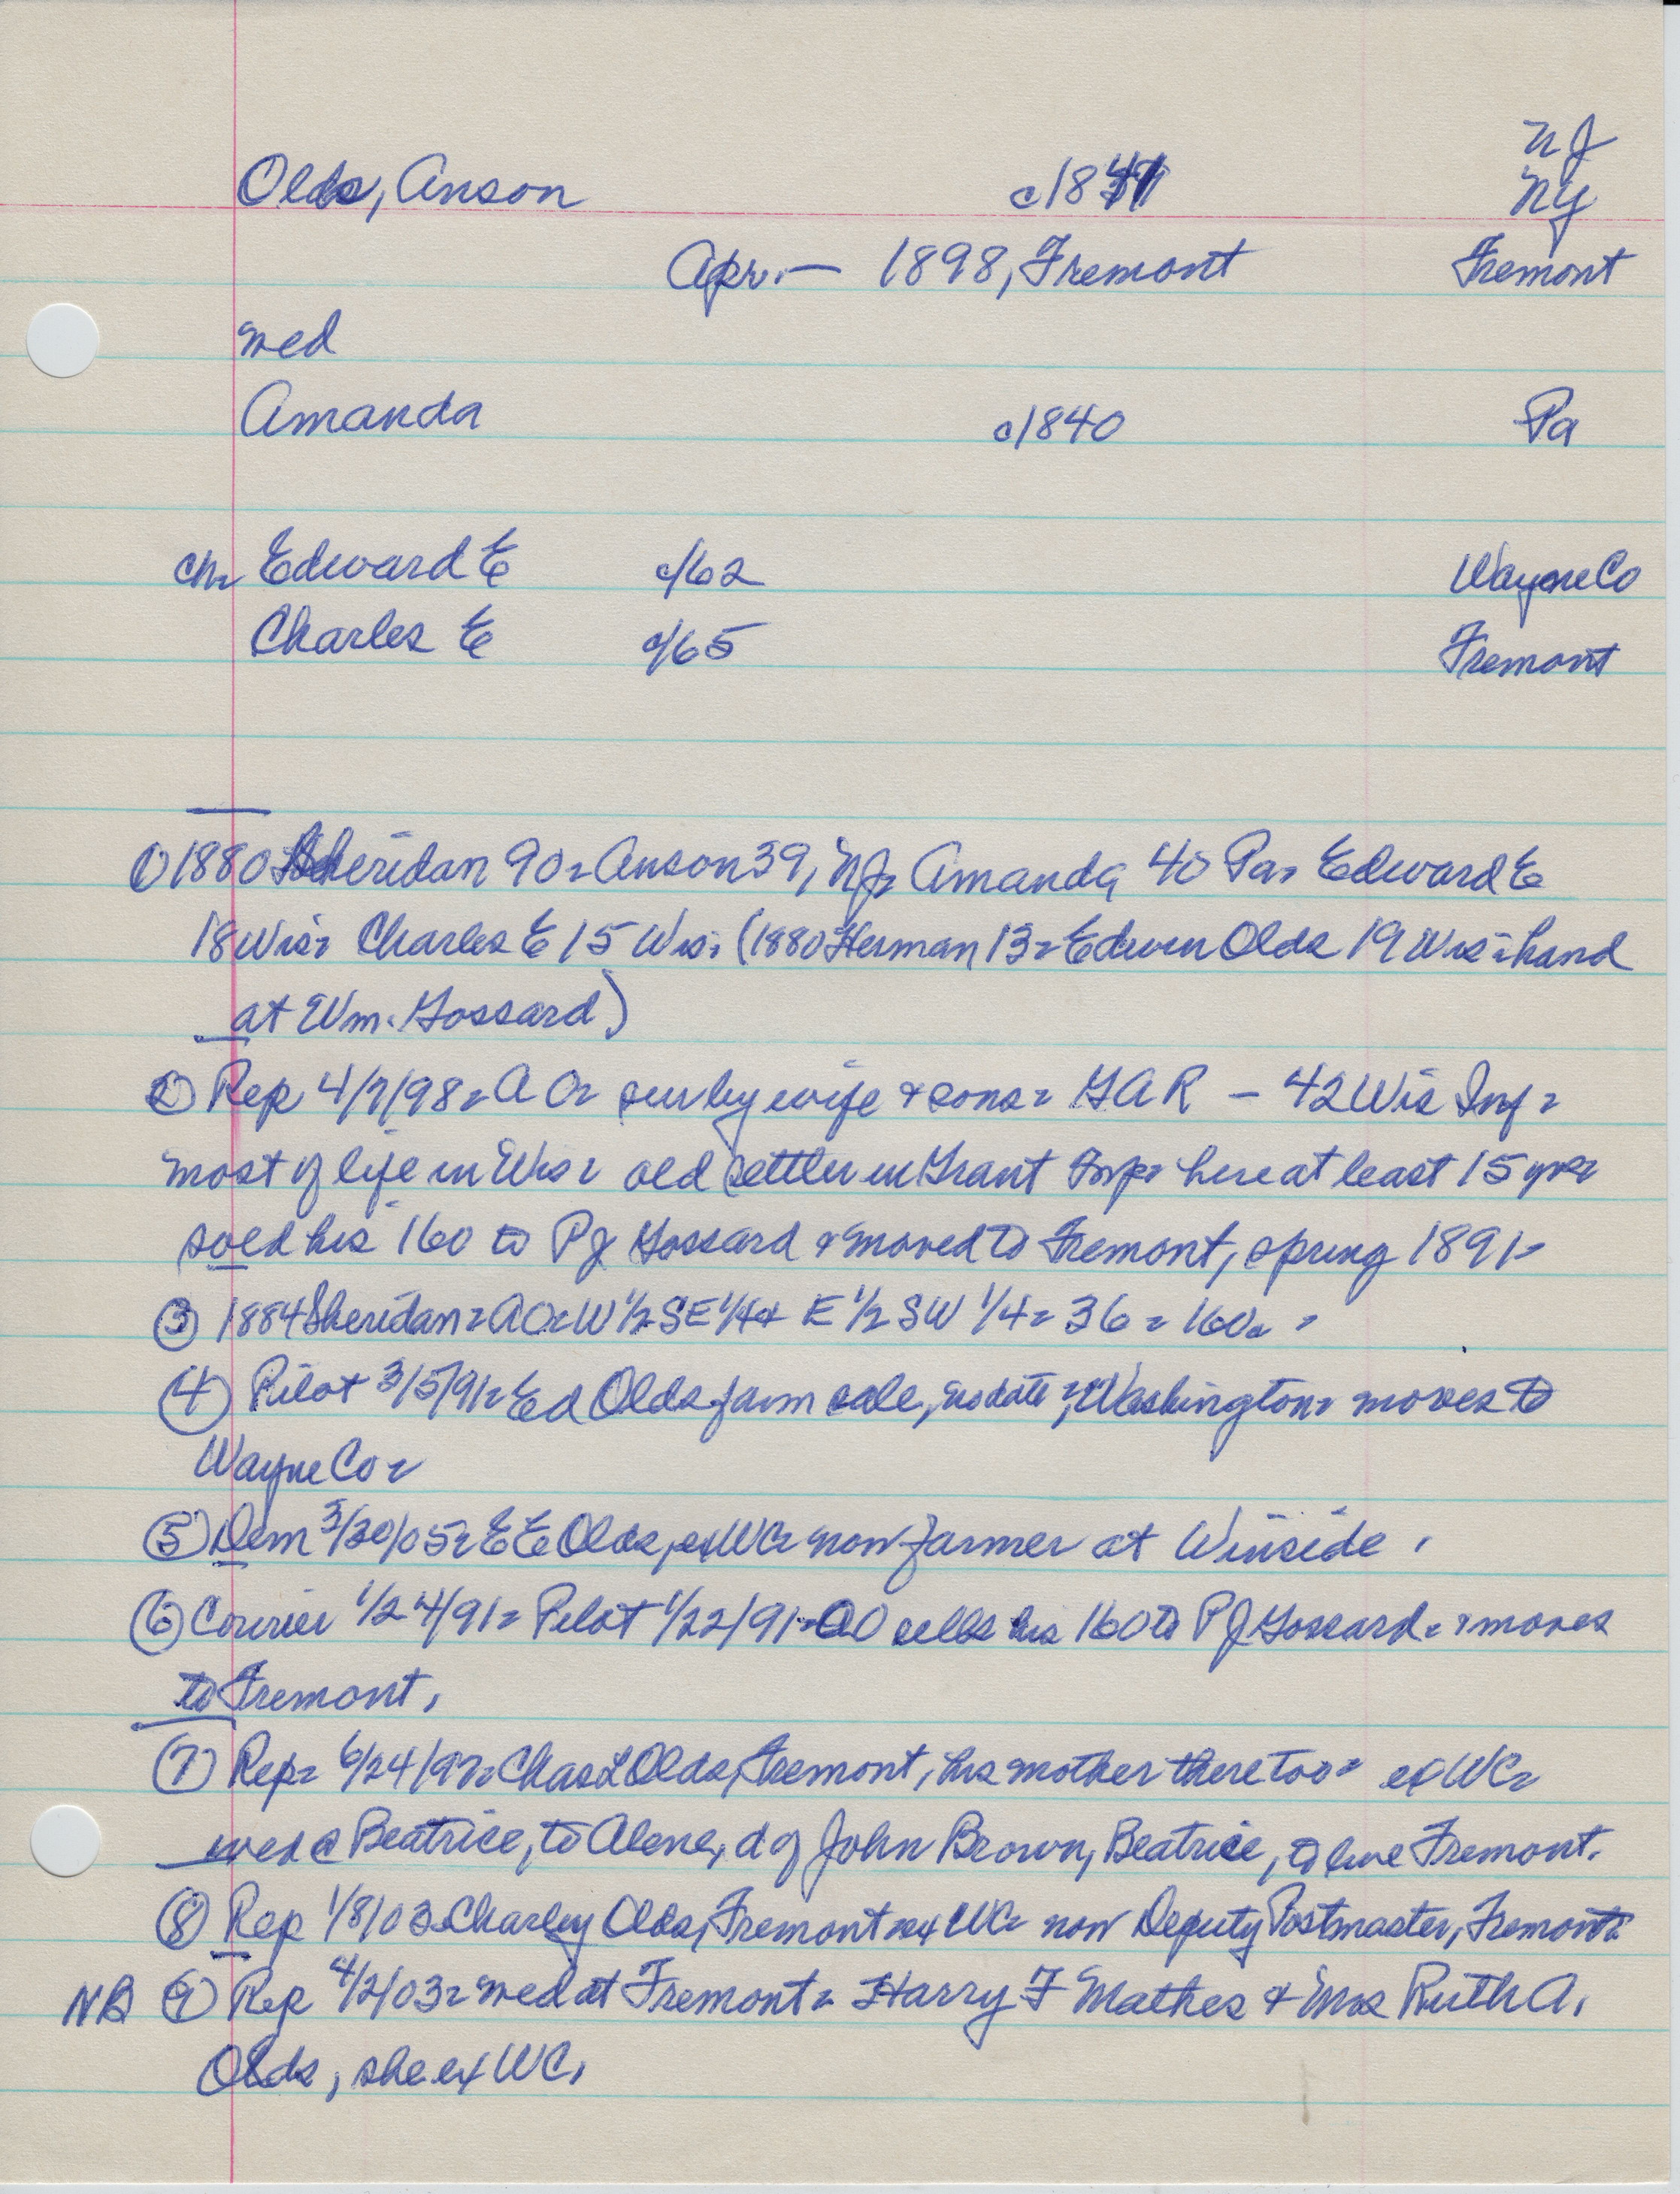 NJ
Olds, Anson c1841 NY
Apr. — 1898, Fremont Fremont
wed
Amanda c1840 Pa
ch= Edward E c/62 Wayne Co
Charles E c/65 Fremont
① 1880 Sheridan 90= Anson 39, NJ= Amanda 40 Pa= Edward E
18 Wis= Charles E 15 Wis= (1880 Herman 13= Edwin Olds 19 Wis= hand
at Wm. Gossard)
② Rep 4/7/98= A O= sur by wife & sons= GAR - 42 Wis Inf=
most of life in Wis= old settler in Grant Twp= here at least 15 yrs=
sold his 160 to PJ Gossard & moved to Fremont, spring 1891=
③ 1884 Sheridan= AO= W 1/2 SE 1/4 & E 1/2 SW 1/4= 36= 160a=
④ Pilot 3/5/91= Ed Olds farm sale, no date, Washington= moves to
Wayne Co=
⑤ Dem 3/30/05= E E Olds, ex WC= now farmer at Winside.
⑥ Courier 1/24/91= Pilot 1/22/91= AO sells his 160 to PJ Gossard= & moves
to Fremont.
⑦ Rep= 6/24/97= Chas L Olds, Fremont, his mother there too= ex WC=
wed @ Beatrice, to Alene, d of John Brown, Beatrice, to live Fremont.
⑧ Rep 1/8/03= Charley Olds, Fremont= ex WC= now Deputy Postmaster, Fremont=
NB ⑨ Rep 4/2/03= wed at Fremont= Harry F Mathes & Mrs Ruth A.
Olds, she ex WC.